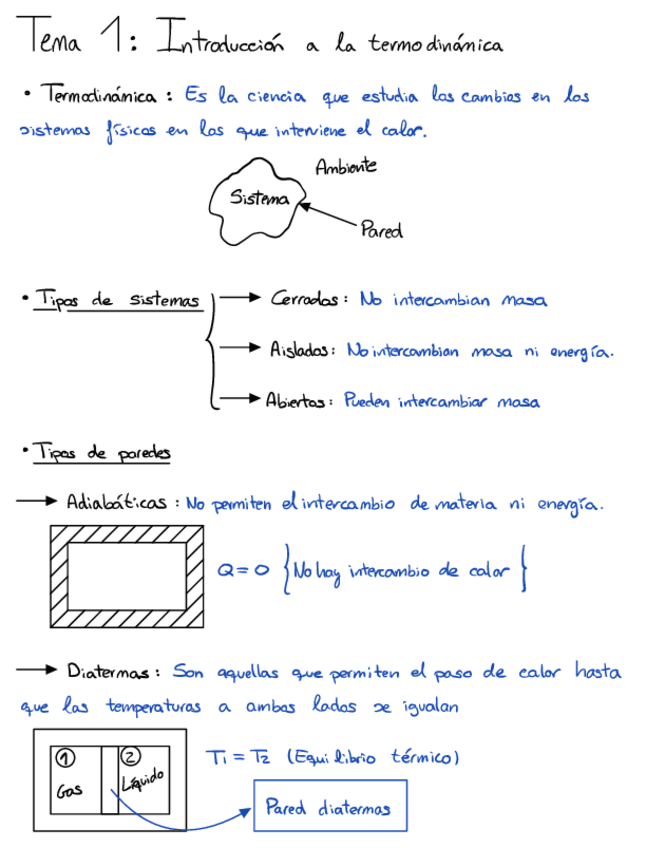 Tema 1: Introducción a la termodinámica
• Termodinámica: Es la ciencia que estudia los cambios en los
sistemas físicos en los que interviene el calor.
Ambiente
Sistema
Pared
• Tipos de sistemas
Cerrados: No intercambian masa
Aislados: No intercambian masa ni energía.
Abiertos: Pueden intercambiar masa
• Tipos de paredes
→ Adiabáticas: No permiten el intercambio de materia ni energía.
Q = 0 {No hay intercambio de calor}
→ Diatermas: Son aquellas que permiten el paso de calor hasta
que las temperaturas a ambos lados se igualan
① Gas
② Líquido
T1 = T2 (Equilibrio térmico)
Pared diatermas